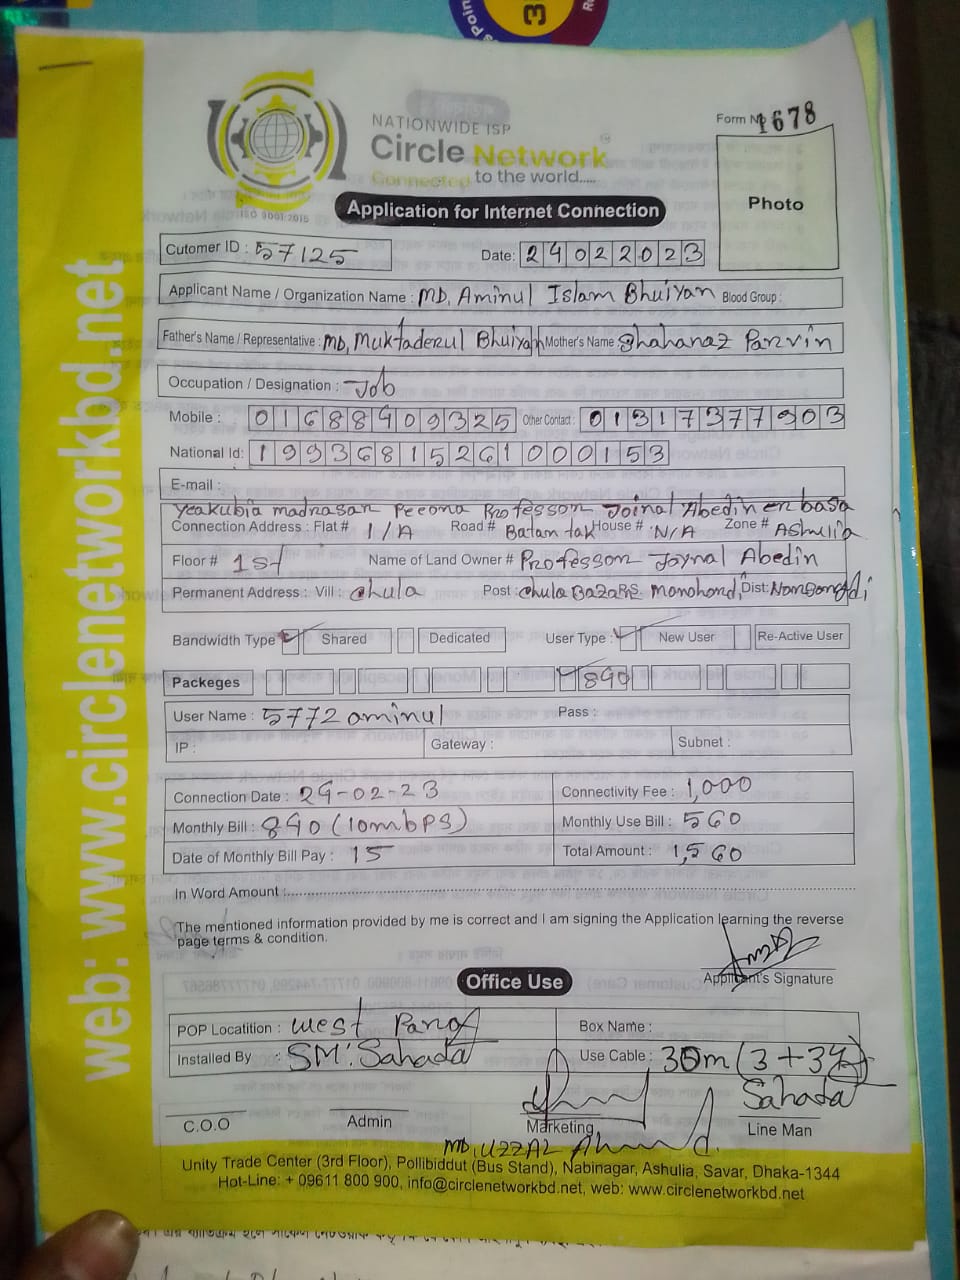 NATIONWIDE ISP
Circle Network
Connected to the world.....
ISO 9001:2015
Form No 1678
Photo
Application for Internet Connection
Cutomer ID : 57125
Date: 24022023
Applicant Name / Organization Name : MD, Aminul Islam Bhuiyan Blood Group :
Father's Name / Representative : MD, Muktaderul Bhuiyan Mother's Name Shahanaz Parvin
Occupation / Designation : Job
Mobile : 01688409325 Other Contact : 01317377903
National Id: 19936815261000153
E-mail :
yeakubia madrasar Professor Joinal Abedin er basa
Connection Address : Flat # 1/A Road # Batam tak House # N/A Zone # Ashulia
Floor # 1st Name of Land Owner # Professor Joynal Abedin
Permanent Address : Vill : chula Post : chula Bazar Dist:
Bandwidth Type Shared Dedicated User Type : New User Re-Active User
Packeges 890
User Name : 5772 aminul Pass :
IP : Gateway : Subnet :
Connection Date : 24-02-23 Connectivity Fee : 1,000
Monthly Bill : 890 (10mbps) Monthly Use Bill : 560
Date of Monthly Bill Pay : 15 Total Amount : 1,560
In Word Amount :
The mentioned information provided by me is correct and I am signing the Application learning the reverse
page terms & condition.
Applicant's Signature
Office Use
POP Locatition : west Box Name :
Installed By : SM. Sahada Use Cable :
Sahada
C.O.O Admin Marketing Line Man
MD, UZZAL
Unity Trade Center (3rd Floor), Pollibiddut (Bus Stand), Nabinagar, Ashulia, Savar, Dhaka-1344
Hot-Line: + 09611 800 900, info@circlenetworkbd.net, web: www.circlenetworkbd.net
web: www.circlenetworkbd.net